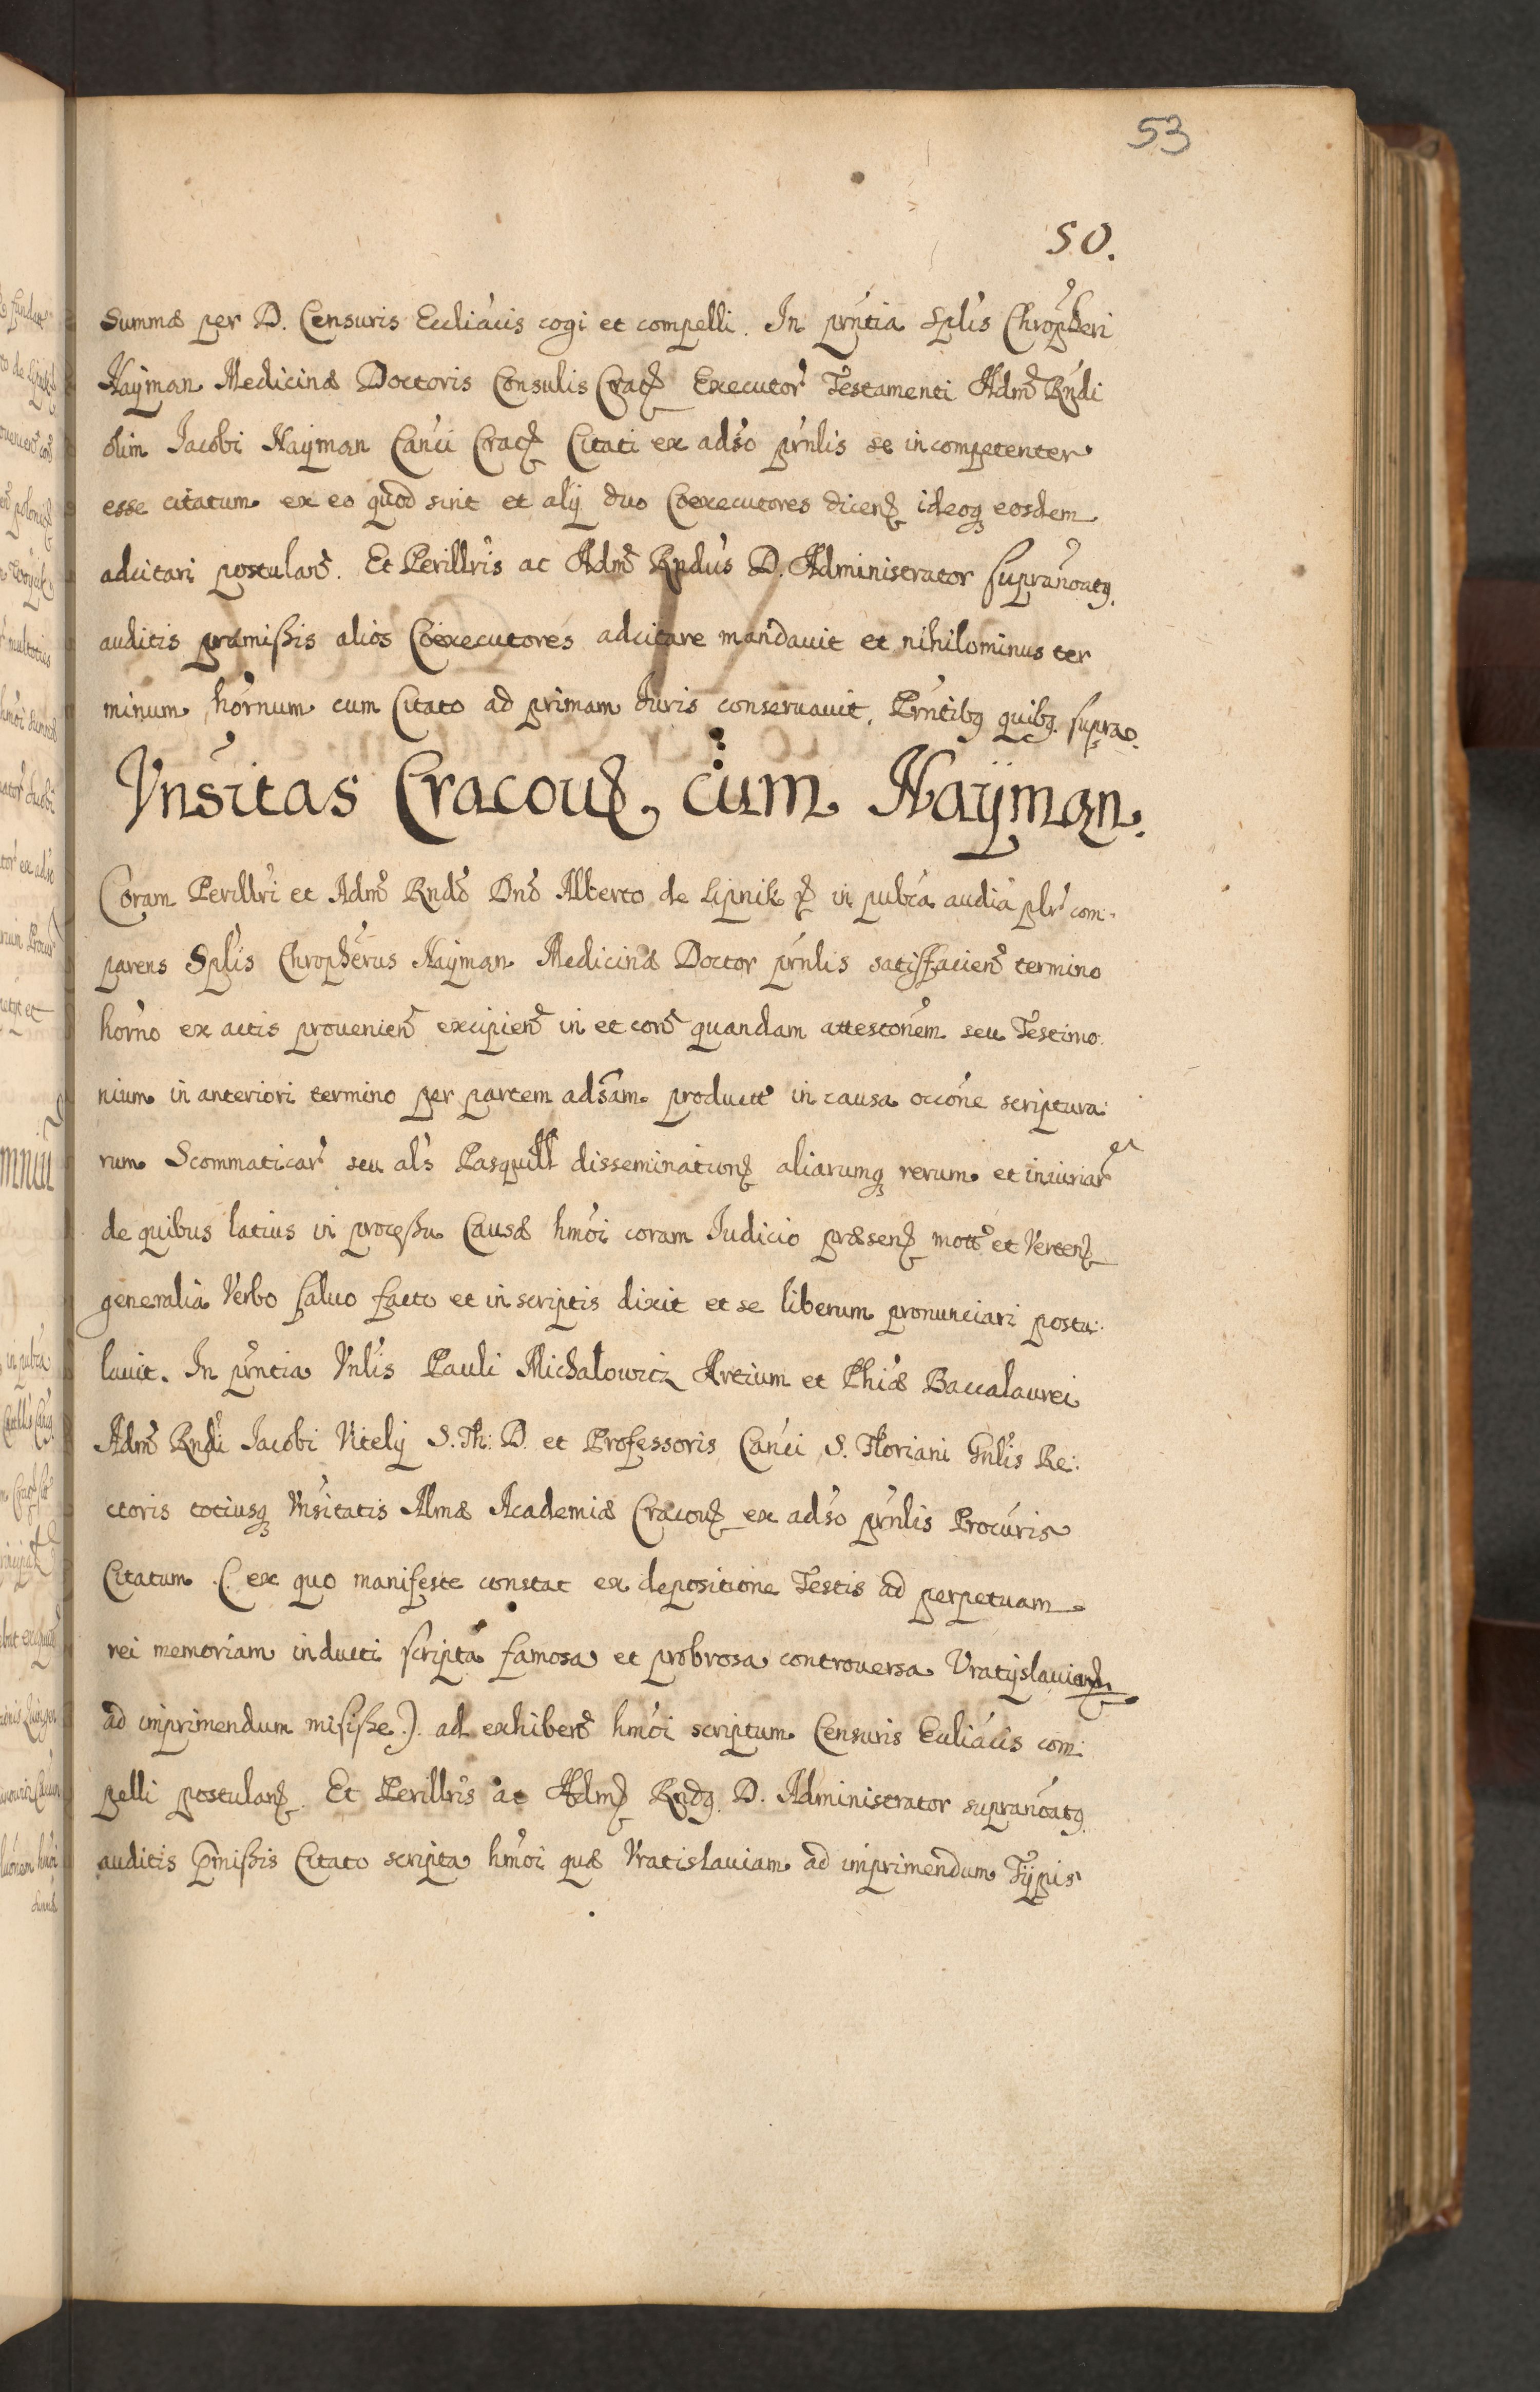 53
50.
Summæ per D. Censuris Eccliácis cogi et compelli. In pŕntia Splis Chropheri
Hayman Medicinæ Doctoris Consulis Crac̃ Executor Testamenti Adm̃ Rńdi
olim Jacobi Hayman Cańci Crac̃ Citati ex adśo pŕnlis se incompetenter
esse citatum ex eo quod sint et alÿ duo Coexecutores dicen̄ ideoq₃ eosdem
adcitari postulan̄. Et Perilĺris ac Adm̃ Rńdus D. Administrator supranoatq.
auditis præmißis alios Coexecutores adcitare mandauit et nihilominus ter
minum hórnum cum Citato ad primam Iuris conseruauit. Pŕntibq quibq. supra.
Vnśitas Cracou̅. cum Haÿman.
Coram Perilĺri et Adm̃ Rnd̃ Dn̄o Alberto de Lipnik ꝛ in pubĺca audiá plŕ com-
parens Spĺis Chropherus Hayman Medicinæ Doctor pŕnlis satisfacien̄ termino
horńo ex actis prouenien̄ excipien̄ in et con̄ quandam attestońem seu Testimo
nium in anteriori termino per partem adśam product̃ in causa occóne scriptura
rum Scommaticar̃ seu aĺs Pasquill̃ dissemination̄ aliarumq₃ rerum et iniuriar̃
de quibus latius in processu Causæ hmói coram Iudicio præsen̄ mot̃ et Verten̄
generalia Verbo saluo facto et in scriptis dixit et se liberum pronunciari postu:
lauit. In pŕntia Vnĺis Pauli Michałowicz Artium et Phiæ Baccalaurei
Adm̃ Rńdi Jacobi Vitelÿ S. Th: D. et Professoris Cańci S. Floriani Gnĺis Re:
ctoris totiusq₃ Vnśitatis Almæ Academiæ Cracou̅ ex adśo pŕnlis Procúris
Citatum (. ex quo manifeste constat ex depositione Testis ad perpetuam
rei memoriam inducti scripta famosa et probrosa controuersa Vratÿslauiam
ad imprimendum misiße.). ad exhiben̄ hmói scriptum Censuris Eccliácis com:
pelli postulan̄. Et Perilĺris ac Adm̃ Rndq. D. Administrator supranóatq.
auditis p̃mißis Citato scripta hmói quæ Vratislauiam ad imprimendum Tÿpis